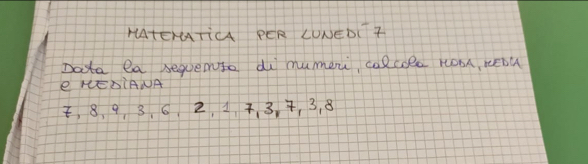 MATEMATICA PER LUNEDÌ 7
Data la sequenza di numeri, calcola MODA, MEDIA
e MEDIANA
7, 8, 9, 3, 6, 2, 1, 7, 3, 7, 3, 8